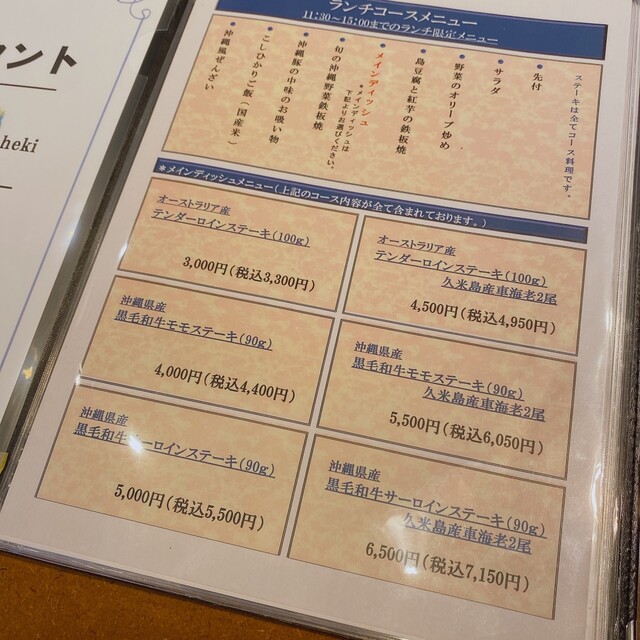 ウント
heki
ランチコースメニュー
11:30～15:00までのランチ限定メニュー
ステーキは全てコース料理です。
・先付
・サラダ
・野菜のオリーブ炒め
・島豆腐と紅芋の鉄板焼
・メインディッシュ
*メインディッシュは
下記よりお選びください。
・旬の沖縄野菜鉄板焼
・沖縄豚の中味のお吸い物
・こしひかりご飯(国産米)
・沖縄風ぜんざい
*メインディッシュメニュー(上記のコース内容が全て含まれております。)
オーストラリア産
テンダーロインステーキ(100g)
3,000円(税込3,300円)
オーストラリア産
テンダーロインステーキ(100g)
久米島産車海老2尾
4,500円(税込4,950円)
沖縄県産
黒毛和牛モモステーキ(90g)
4,000円(税込4,400円)
沖縄県産
黒毛和牛モモステーキ(90g)
久米島産車海老2尾
5,500円(税込6,050円)
沖縄県産
黒毛和牛サーロインステーキ(90g)
5,000円(税込5,500円)
沖縄県産
黒毛和牛サーロインステーキ(90g)
久米島産車海老2尾
6,500円(税込7,150円)